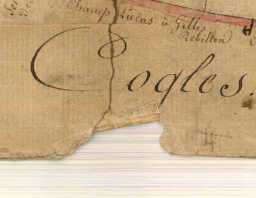 Champ Lucas à Gilles
Rebillon
Cogles.